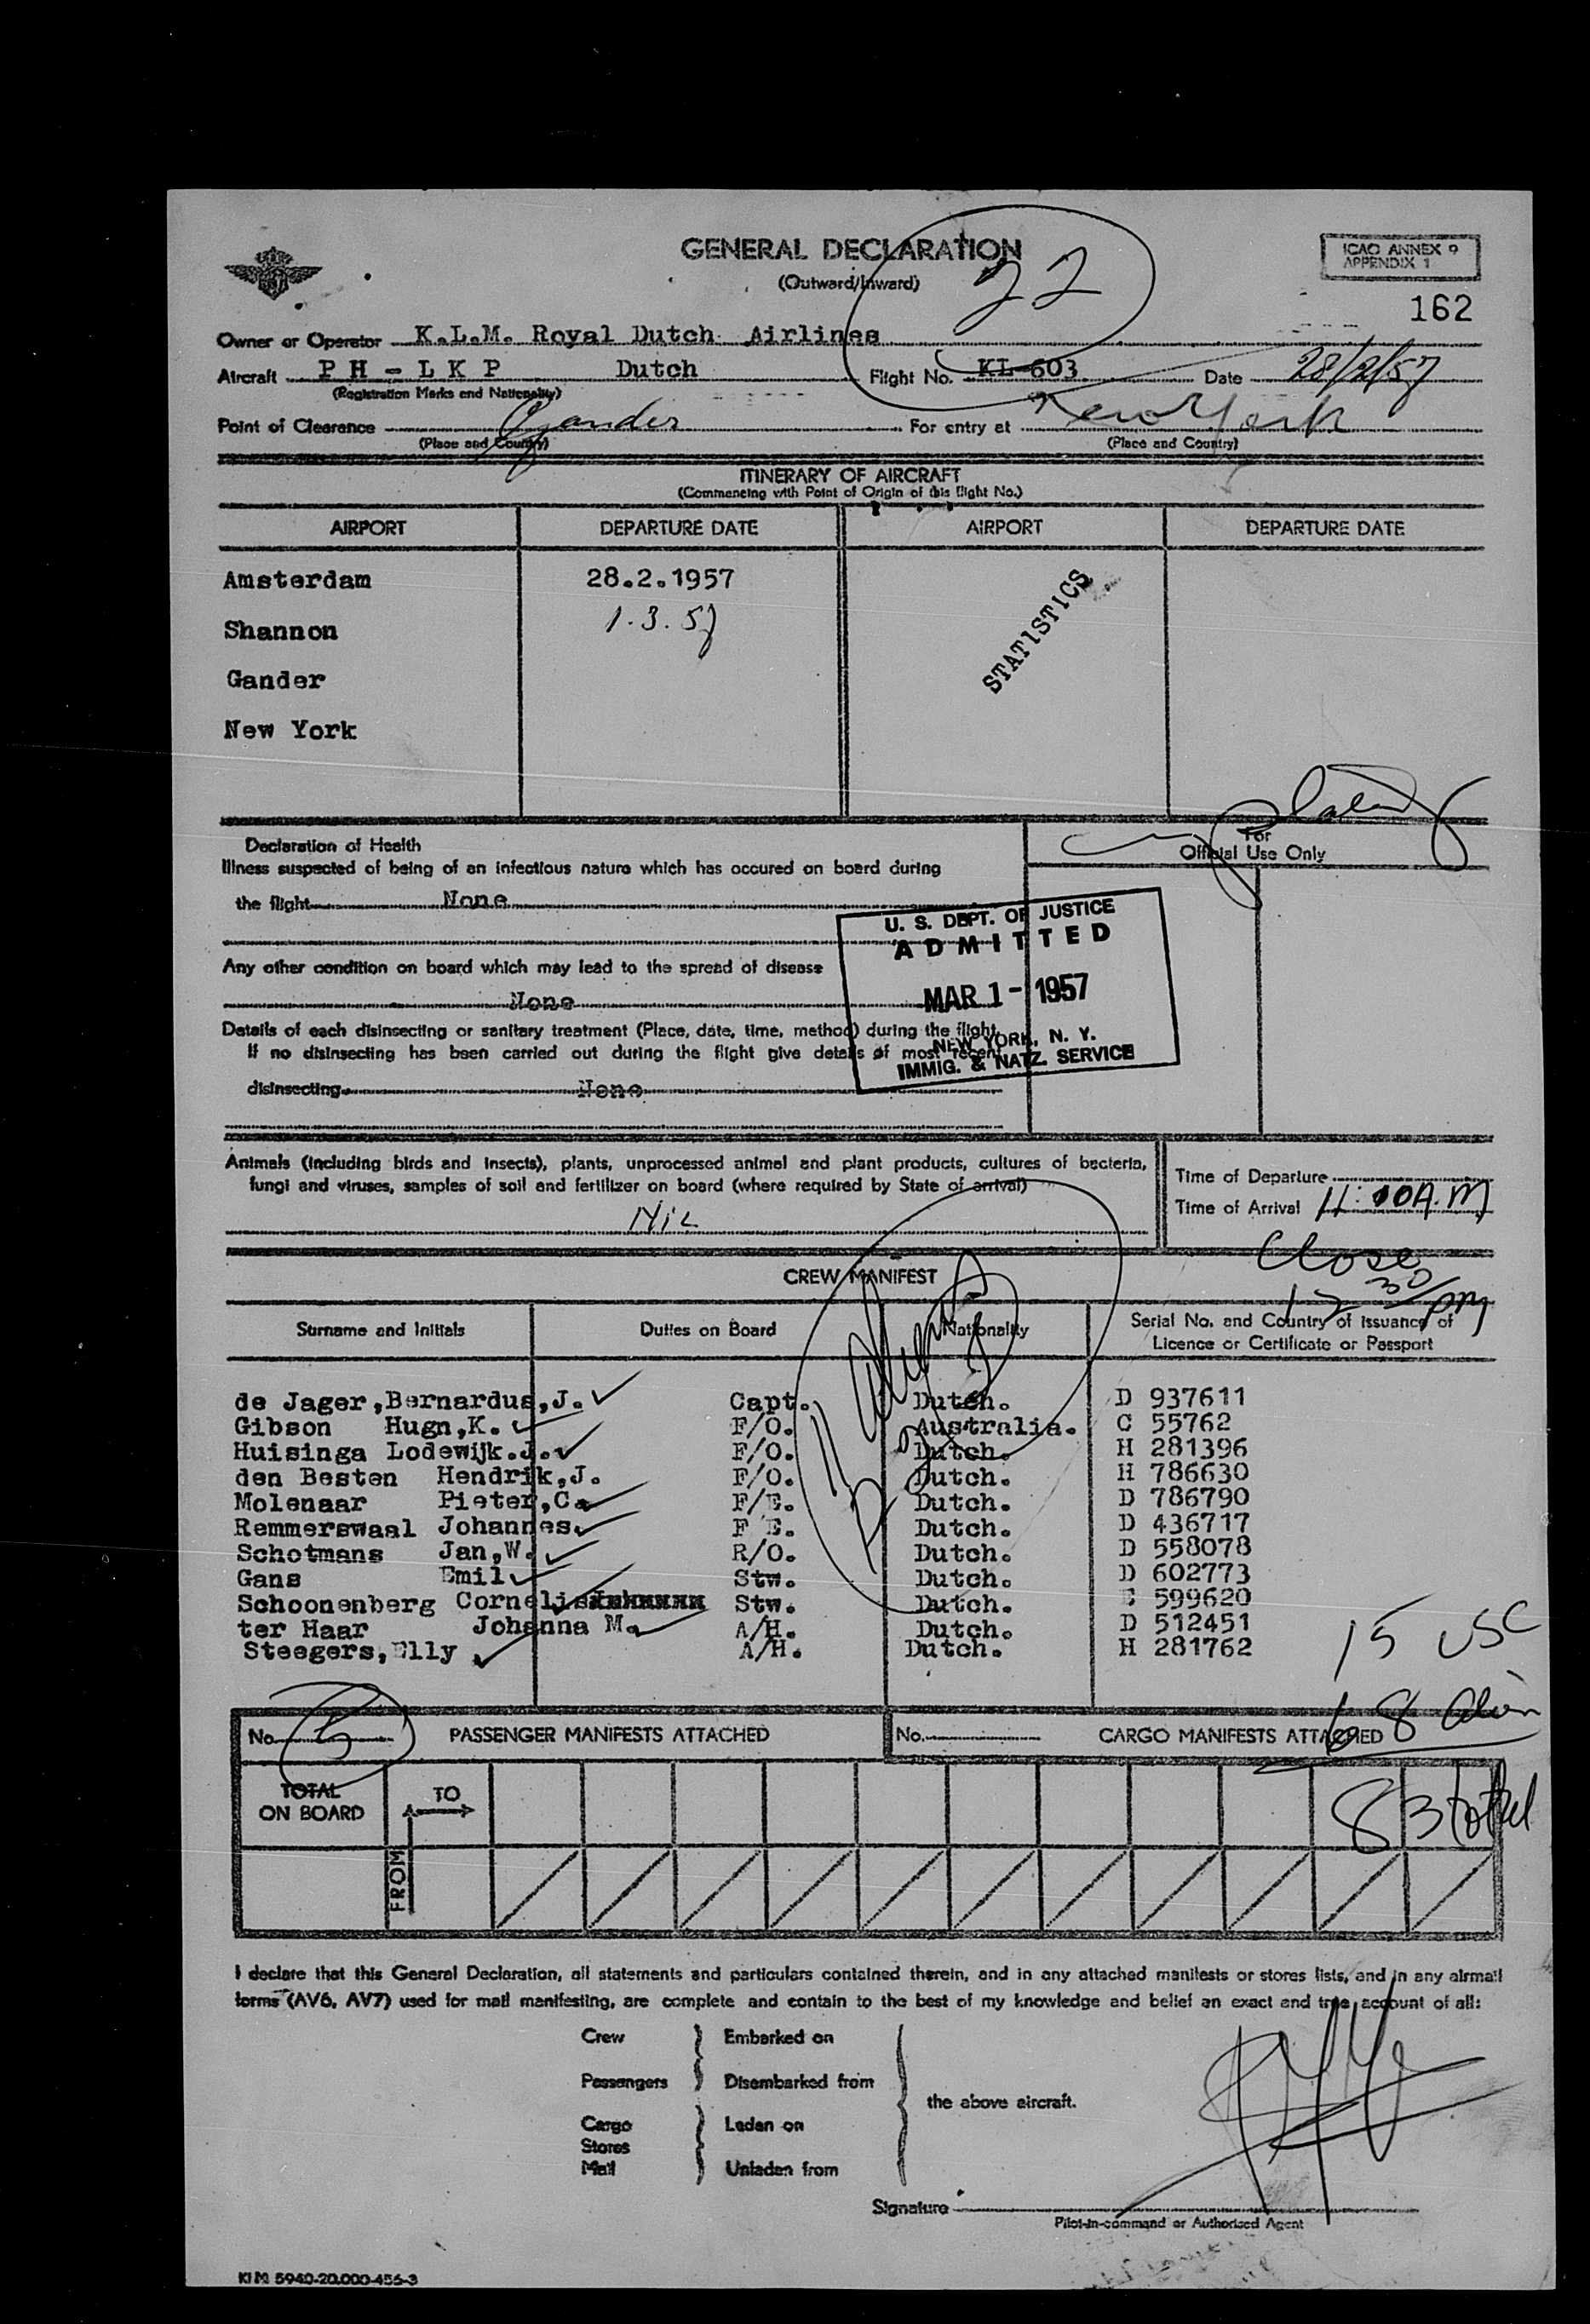 GENERAL DECLARATION
(Outward/Inward)
22
ICAO ANNEX 9
APPENDIX 1
162
Owner or Operator K.L.M. Royal Dutch Airlines
Aircraft P H - L K P Dutch Flight No. KL-603 Date 28/2/57
(Registration Marks and Nationality)
Point of Clearance Gander For entry at New York
(Place and Country) (Place and Country)
ITINERARY OF AIRCRAFT
(Commencing with Point of Origin of this flight No.)
AIRPORT DEPARTURE DATE AIRPORT DEPARTURE DATE
Amsterdam 28.2.1957
Shannon 1.3.57
Gander
New York
STATISTICS
Declaration of Health
For
Official Use Only
Illness suspected of being of an infectious nature which has occured on board during
the flight None
Any other condition on board which may lead to the spread of disease
None
Details of each disinsecting or sanitary treatment (Place, date, time, method) during the flight.
If no disinsecting has been carried out during the flight give details of most recent
disinsecting. None
U. S. DEPT. OF JUSTICE
ADMITTED
MAR 1 - 1957
NEW YORK, N. Y.
IMMIG. & NATZ. SERVICE
Animals (including birds and insects), plants, unprocessed animal and plant products, cultures of bacteria,
fungi and viruses, samples of soil and fertilizer on board (where required by State of arrival)
Nil
Time of Departure
Time of Arrival 11:00 A.M
Close
12 30/pm
CREW MANIFEST
Surname and Initials Duties on Board Nationality Serial No. and Country of Issuance of
Licence or Certificate or Passport
de Jager,Bernardus,J. Capt. Dutch. D 937611
Gibson Hugn,K. F/O. Australia. C 55762
Huisinga Lodewijk.J. F/O. Dutch. H 281396
den Besten Hendrik,J. F/O. Dutch. H 786630
Molenaar Pieter,C. F/E. Dutch. D 786790
Remmerswaal Johannes. F E. Dutch. D 436717
Schotmans Jan,W. R/O. Dutch. D 558078
Gans Emil Stw. Dutch. D 602773
Schoonenberg Cornelis Stw. Dutch. 599620
ter Haar Johanna M. A/H. Dutch. D 512451
Steegers,Elly A/H. Dutch. H 281762
15 USC
68 Alien
83 total
No. 5 PASSENGER MANIFESTS ATTACHED No. CARGO MANIFESTS ATTACHED
TOTAL
ON BOARD
TO
FROM
I declare that this General Declaration, all statements and particulars contained therein, and in any attached manifests or stores lists, and in any airmail
forms (AV6, AV7) used for mail manifesting, are complete and contain to the best of my knowledge and belief an exact and true account of all:
Crew Embarked on
Passengers Disembarked from
the above aircraft.
Cargo Laden on
Stores
Mail Unladen from
Signature
Pilot-in-command or Authorized Agent
KLM 5940-20.000-456-3